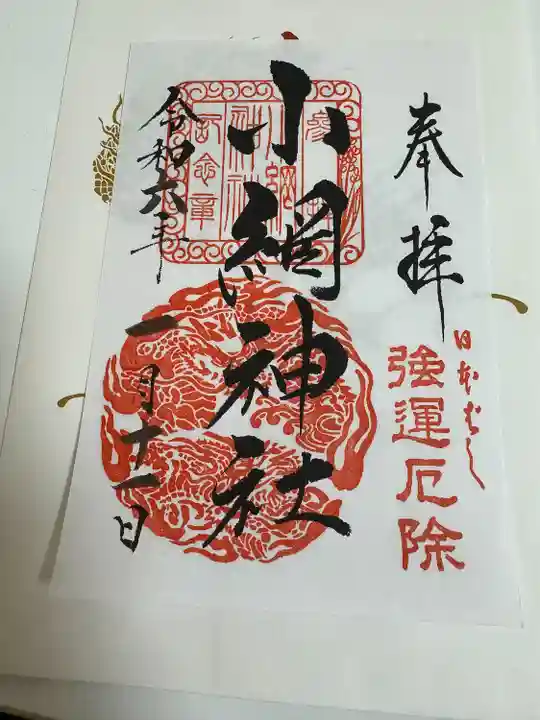 奉拝
日本ばし
強運厄除
小網神社
令和六年
一月十一日